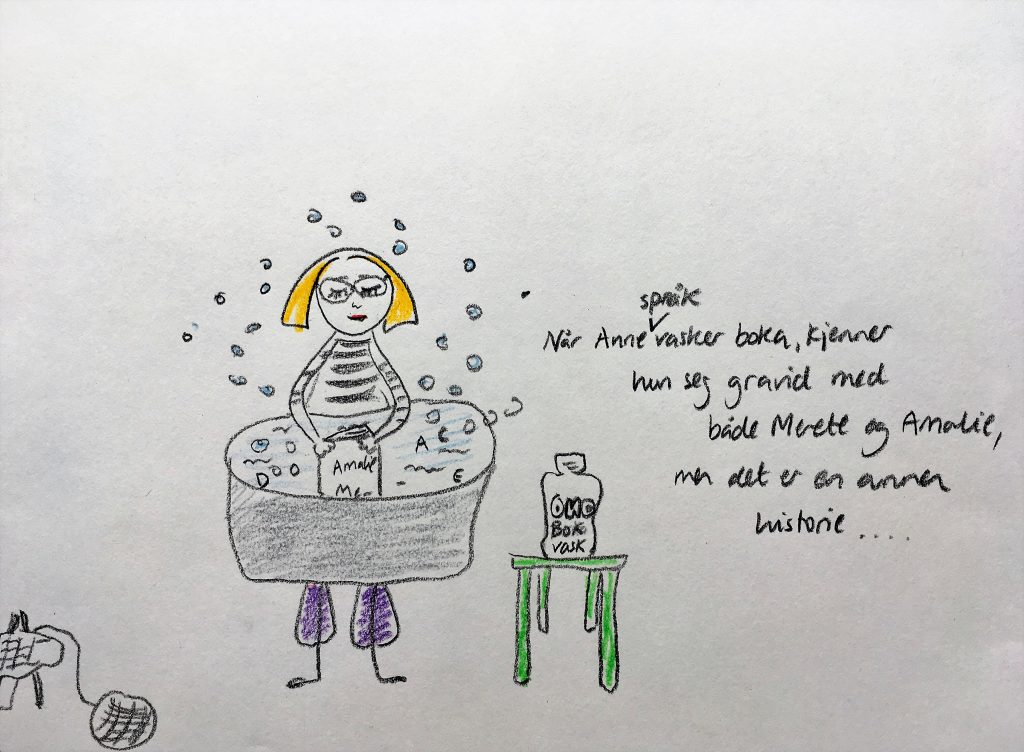 språk
Når Anne vasker boka, kjenner
hun seg gravid med
både Merete og Amalie,
men det er en annen
historie .....
A C
D
E
Amalie
Me-
OMO
Bok
vask